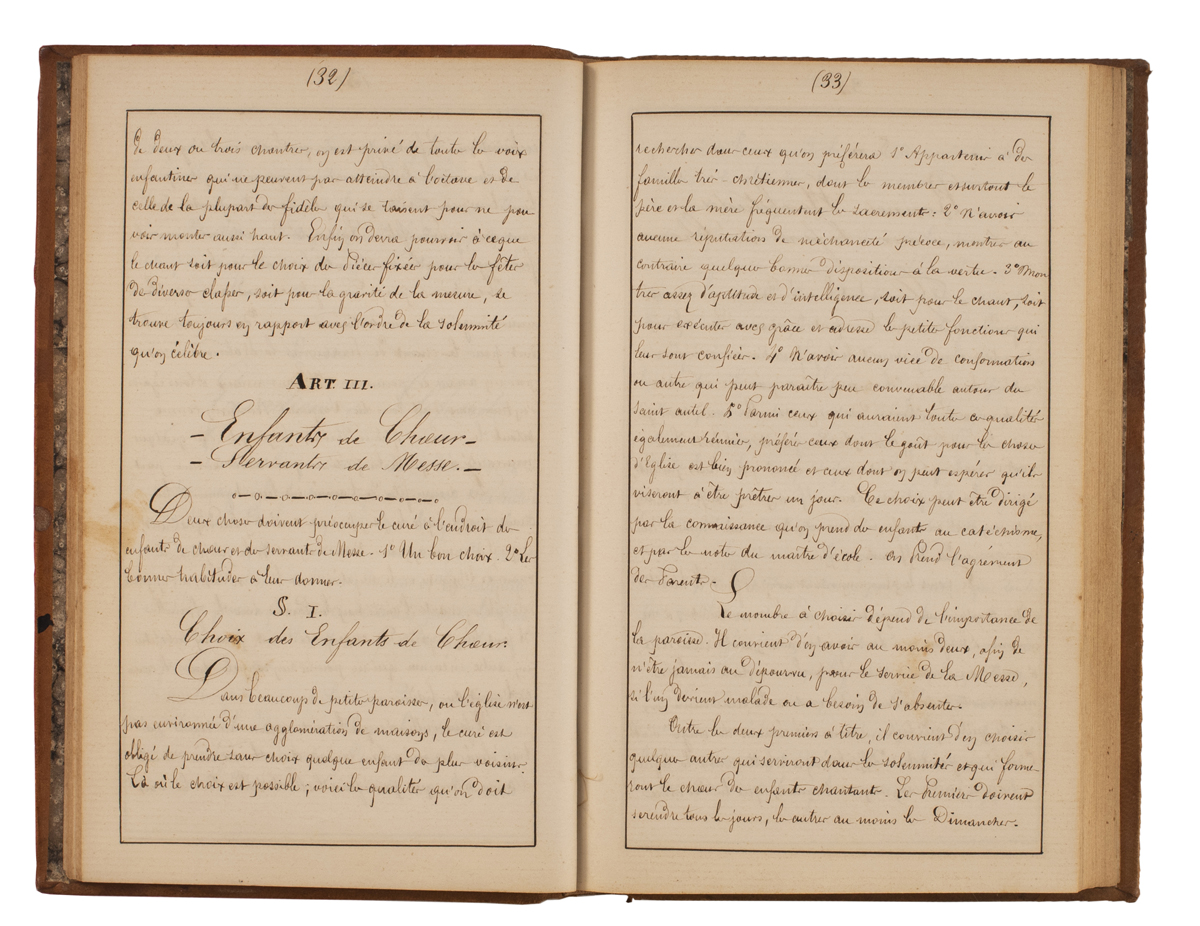 (32)
de deux ou trois chantres, on est privé de toutes les voix
enfantines qui ne peuvent pas atteindre à l'octave et de
celle de la plupart des fidèles qui se taisent pour ne pou
voir monter aussi haut. Enfin on devra pourvoir à ce que
le chant soit pour le choix des pièces fixées pour les fêtes
de diverses classes, soit pour la gravité de la mesure, se
trouve toujours en rapport avec l'ordre de la solennité
qu'on célèbre.
ART. III.
- Enfants de Chœur -
- Servants de Messe. -
Deux choses doivent préoccuper le curé à l'endroit des
enfants de chœur et des servants de Messe. 1° Un bon choix. 2° Les
bonnes habitudes à leur donner.
S. I.
Choix des Enfants de Chœur.
Dans beaucoup de petites paroisses, ou l'église n'est
pas environnée d'une agglomération de maisons, le curé est
obligé de prendre sans choix quelques enfants des plus voisins.
Là où le choix est possible ; voici les qualités qu'on doit
(33)
rechercher dans ceux qu'on préférera 1° Appartenir à des
familles très-chrétiennes, dont les membres et surtout le
père et la mère fréquentent les sacrements : 2° N'avoir
aucune réputation de méchanceté précoce, montrer au
contraire quelques bonnes dispositions à la vertu. 3° Mon
trer assez d'aptitude et d'intelligence, soit pour le chant, soit
pour exécuter avec grâce et adresse les petites fonctions qui
leur sont confiées. 4° N'avoir aucun vice de conformation
ou autre qui peut paraître peu convenable autour du
saint autel. 5° Parmi ceux qui auraient toutes ces qualités
également réunies, préférés ceux dont le goût pour les choses
d'Eglise est bien prononcé et ceux dont on peut espérer qu'ils
viseront à être prêtres un jour. Ce choix peut être dirigé
par la connaissance qu'on prend des enfants au catéchisme,
et par les notes du maître d'école. On prend l'agrément
des Parents.
Le nombre à choisir dépend de l'importance de
la paroisse. Il convient d'en avoir au moins deux, afin de
n'être jamais au dépourvu, pour le service de la Messe,
si l'un devient malade ou a besoin de s'absenter.
Outre les deux premiers à titre, il convient d'en choisir
quelques autres qui serviront dans les solennités et qui forme-
ront le chœur des enfants chantants. Les Premiers doivent
se rendre tous les jours, les autres au moins les Dimanches.